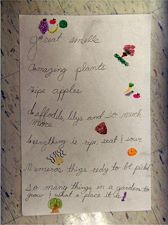 Great smells
Amazing plants
Ripe apples
Daffodils, lilys and so much
more
Everything is ripe, sweet & sour
Numerous things redy to be pickd
So many things in a garden to
grow! what a place it is!